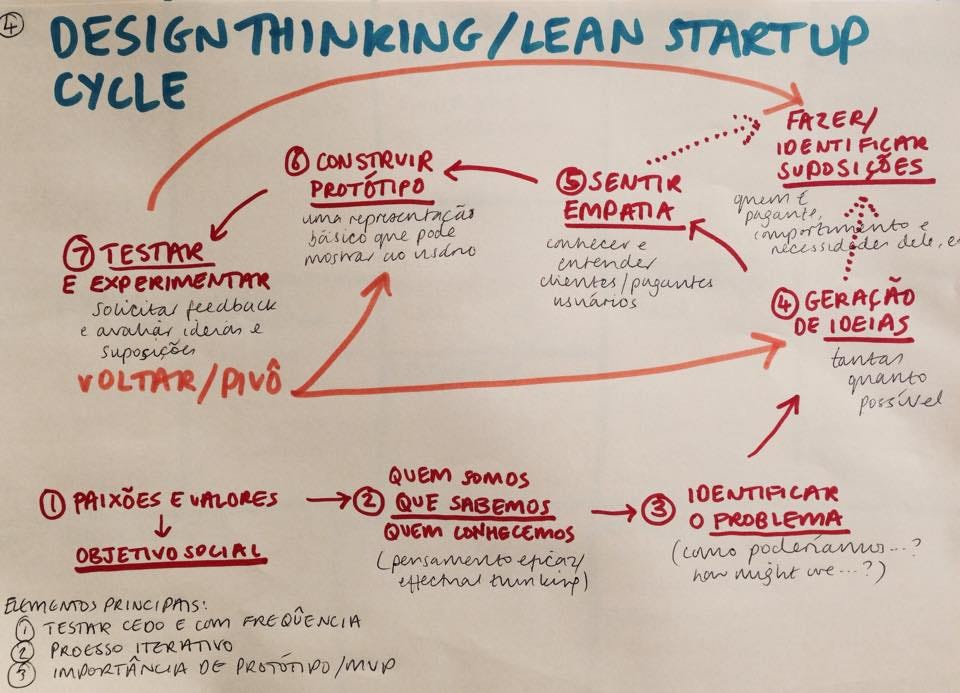 4
DESIGN THINKING/LEAN STARTUP
CYCLE
FAZER/
IDENTIFICAR
SUPOSIÇÕES
quem é
pagante,
comportimento e
necessidades dele, e
6 CONSTRUIR
PROTÓTIPO
uma representação
básico que pode
mostrar ao usário
5 SENTIR
EMPATIA
conhecer e
entender
clientes/pagantes
usuários
7 TESTAR
E EXPERIMENTAR
solicitar feedback
e avaliar ideias e
suposições
VOLTAR/PIVÔ
4 GERAÇÃO
DE IDEIAS
tantas
quanto
possível
1 PAIXÕES E VALORES
OBJETIVO SOCIAL
QUEM SOMOS
2 QUE SABEMOS
QUEM CONHECEMOS
(pensamento eficaz/
effectual thinking)
IDENTIFICAR
3 O PROBLEMA
(como poderíamos...?
how might we...?)
ELEMENTOS PRINCIPAIS:
1 TESTAR CEDO E COM FREQÛENCIA
2 PROESSO ITERATIVO
3 IMPORTÂNCIA DE PROTÓTIPO/MVP